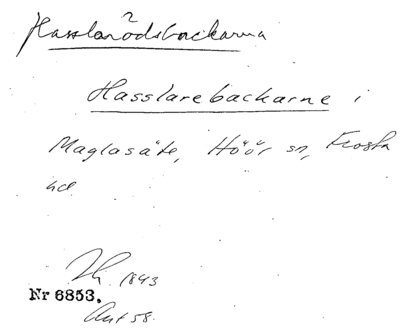 ?
Hasslarödsbackarna
Hasslarebackarne i
Maglasäte, Höör sn, Frosta
hd
1843
Nr 6853.
Ant 58.